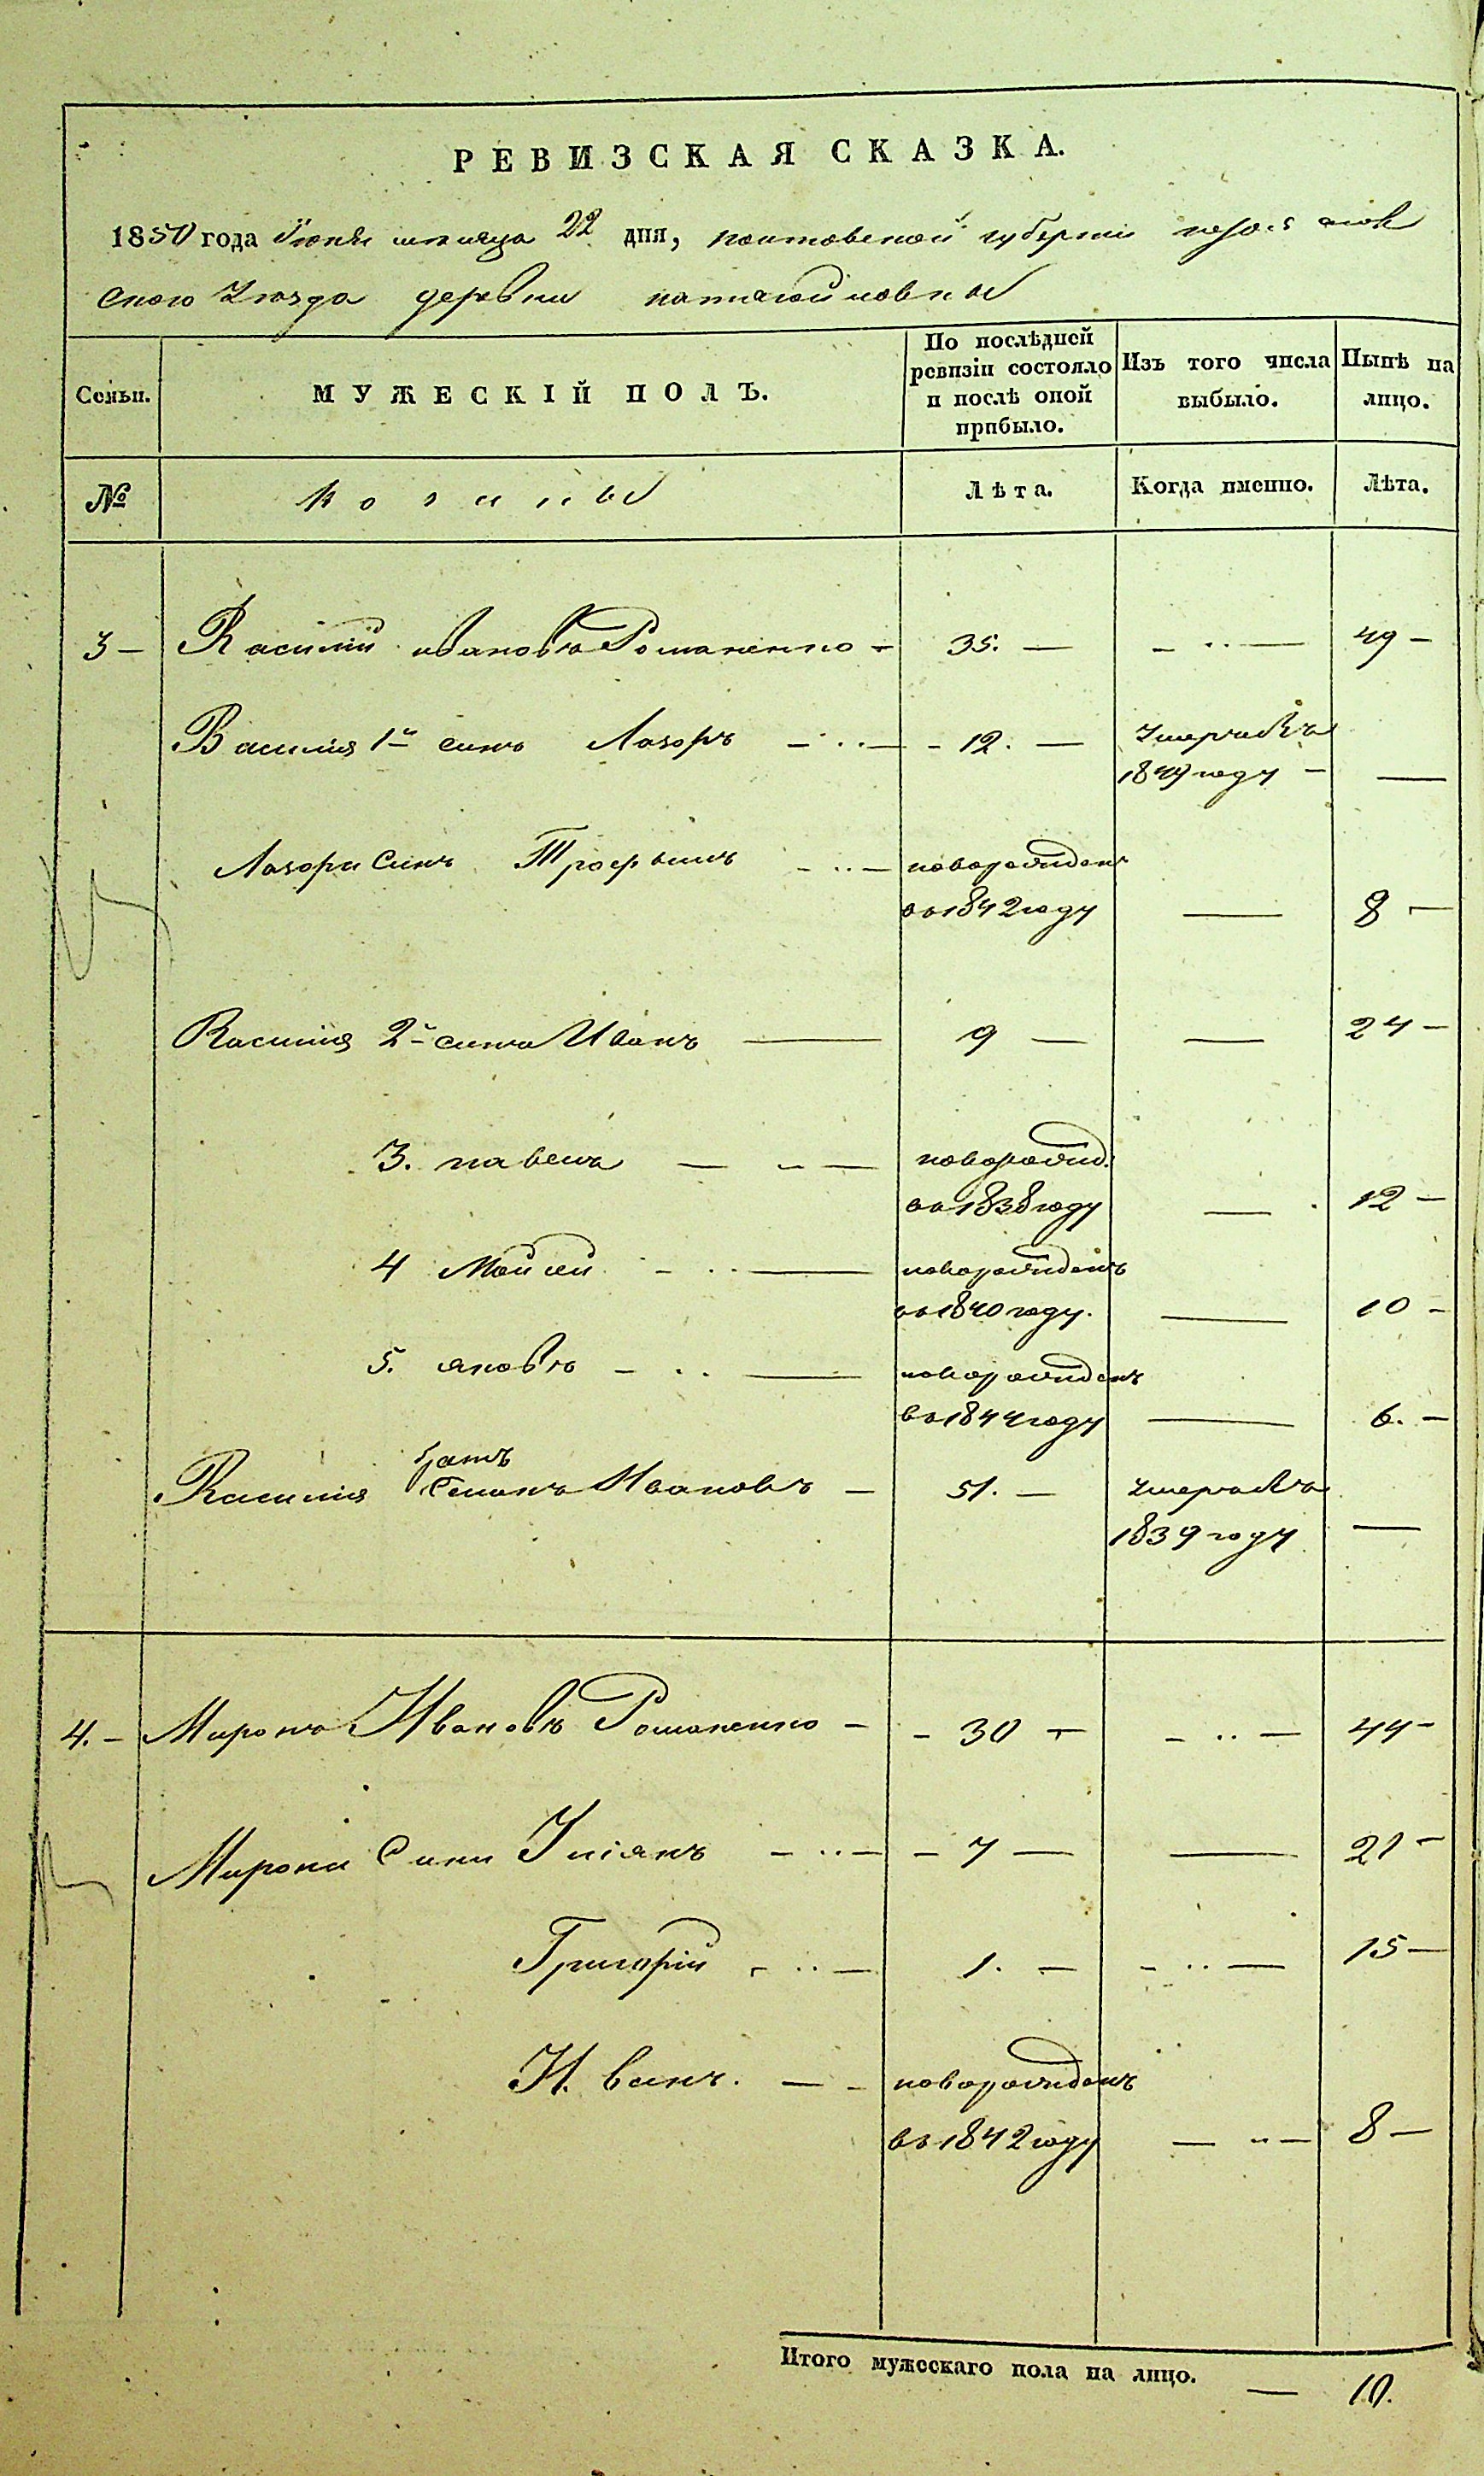 РЕВИЗСКАЯ СКАЗКА.
1850 года Іюня месяца 22 дня, полтавской губерніи
ского уезда деревни
Семьи.
МУЖЕСКІЙ ПОЛЪ.
По послѣдней ревизіи состояло и послѣ оной прибыло.
Изъ того числа выбыло.
Нынѣ на лицо.
№
козаки
Лѣта.
Когда именно.
Лѣта.
3 — Василий ивановъ Романенко — 35. — — ·· — 49 —
Василия 1й синъ Лазорь — ·· — - 12. — Умерь въ
1849 году — —
Лазоря Синъ Трофымъ - ·· — новорожденъ
въ 1842 году — 8 —
Василия 2й синъ Иванъ — 9 — — 24 —
3. павелъ — - — новорожд.
въ 1838 году — 12 —
4 Мойсей - ·· — новорожденъ
въ 1840 году. — 10 -
5. яковъ - ·· — новорожденъ
въ 1844 году — 6. —
братъ
Василия Семенъ Ивановъ — 51. — Умерь въ
1839 году —
4. — Миронъ Ивановъ Романенко — - 30 — - ·· — 44 -
Мирона Сини Улiянъ - ·· — - 7 — — 21 -
Григорій - ·· — 1. — - ·· — 15 —
Иванъ. — - новорожденъ
въ 1842 году — ·· — 8 —
Итого мужескаго пола на лицо. — 10.